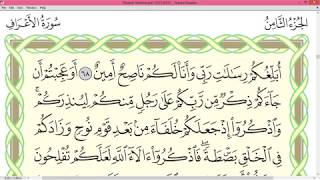 الجزء الثامن سورة الأعراف
أُبَلِّغُكُمْ رِسَٰلَٰتِ رَبِّي وَأَنَا۠ لَكُمْ نَاصِحٌ أَمِينٌ ٦٨ أَوَعَجِبْتُمْ أَن
جَآءَكُمْ ذِكْرٌ مِّن رَّبِّكُمْ عَلَىٰ رَجُلٍ مِّنكُمْ لِيُنذِرَكُمْ ۚ
وَٱذْكُرُوٓا۟ إِذْ جَعَلَكُمْ خُلَفَآءَ مِنۢ بَعْدِ قَوْمِ نُوحٍ وَزَادَكُمْ
فِي ٱلْخَلْقِ بَصْۜطَةً ۖ فَٱذْكُرُوٓا۟ ءَالَآءَ ٱللَّهِ لَعَلَّكُمْ تُفْلِحُونَ